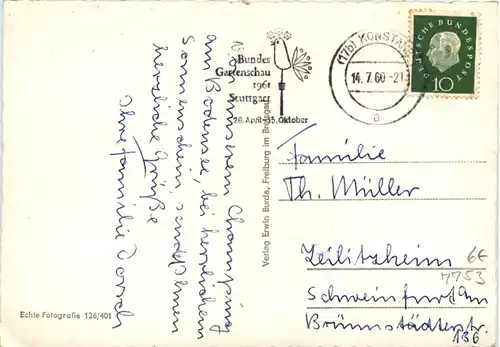 Von unserem Champing
am Bodensee, bei herrlichem
Sonnenschein sendet Ihnen
herzliche Grüße
Ihre Familie Dorsch
Echte Fotografie 126/401
Verlag Erwin Burda, Freiburg im Breisgau
Bundes
Gartenschau
1961
Stuttgart
28. April-15. Oktober
(17b) KONSTANZ
14.7.60-21
a
DEUTSCHE BUNDESPOST
10
Familie
Th. Müller
Zeilitzheim
6E
7753
Schweinfurt
Brünnstädterstr.
136